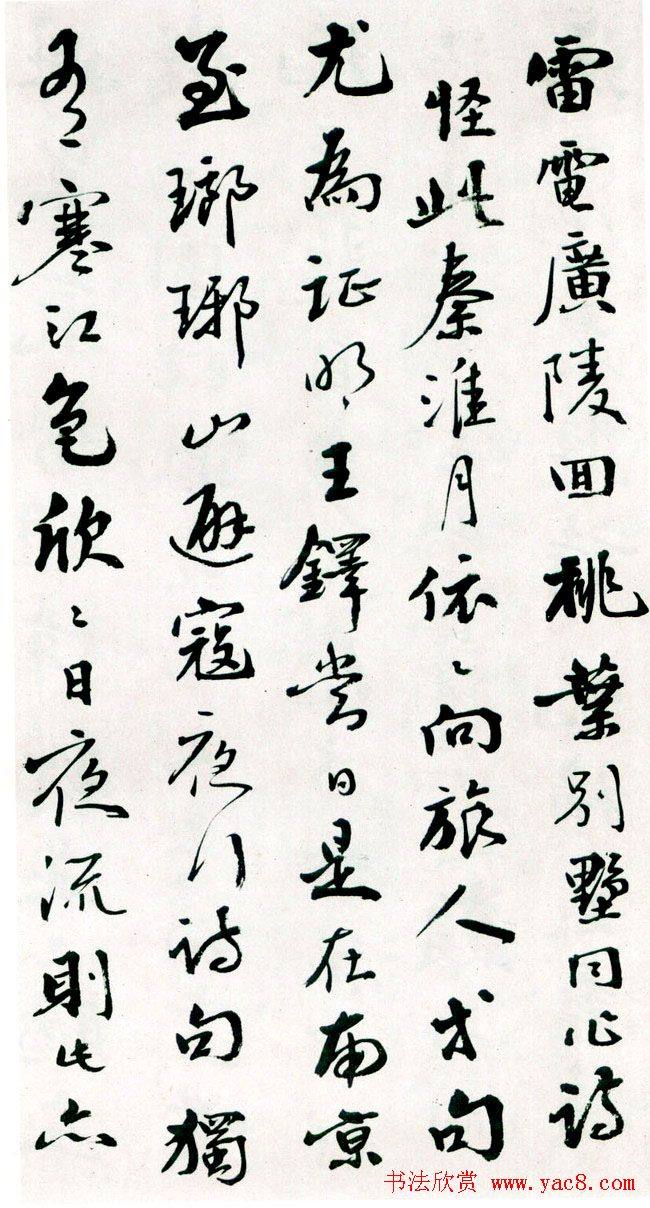 雷電廣陵回桃葉別墅同作詩
怪此秦淮月依々向旅人等句
尤為証明王鐸當日是在南京
至瑯琊山避寇夜行詩句獨
有寒江色欣々日夜流則此亦
书法欣赏 www.yac8.com